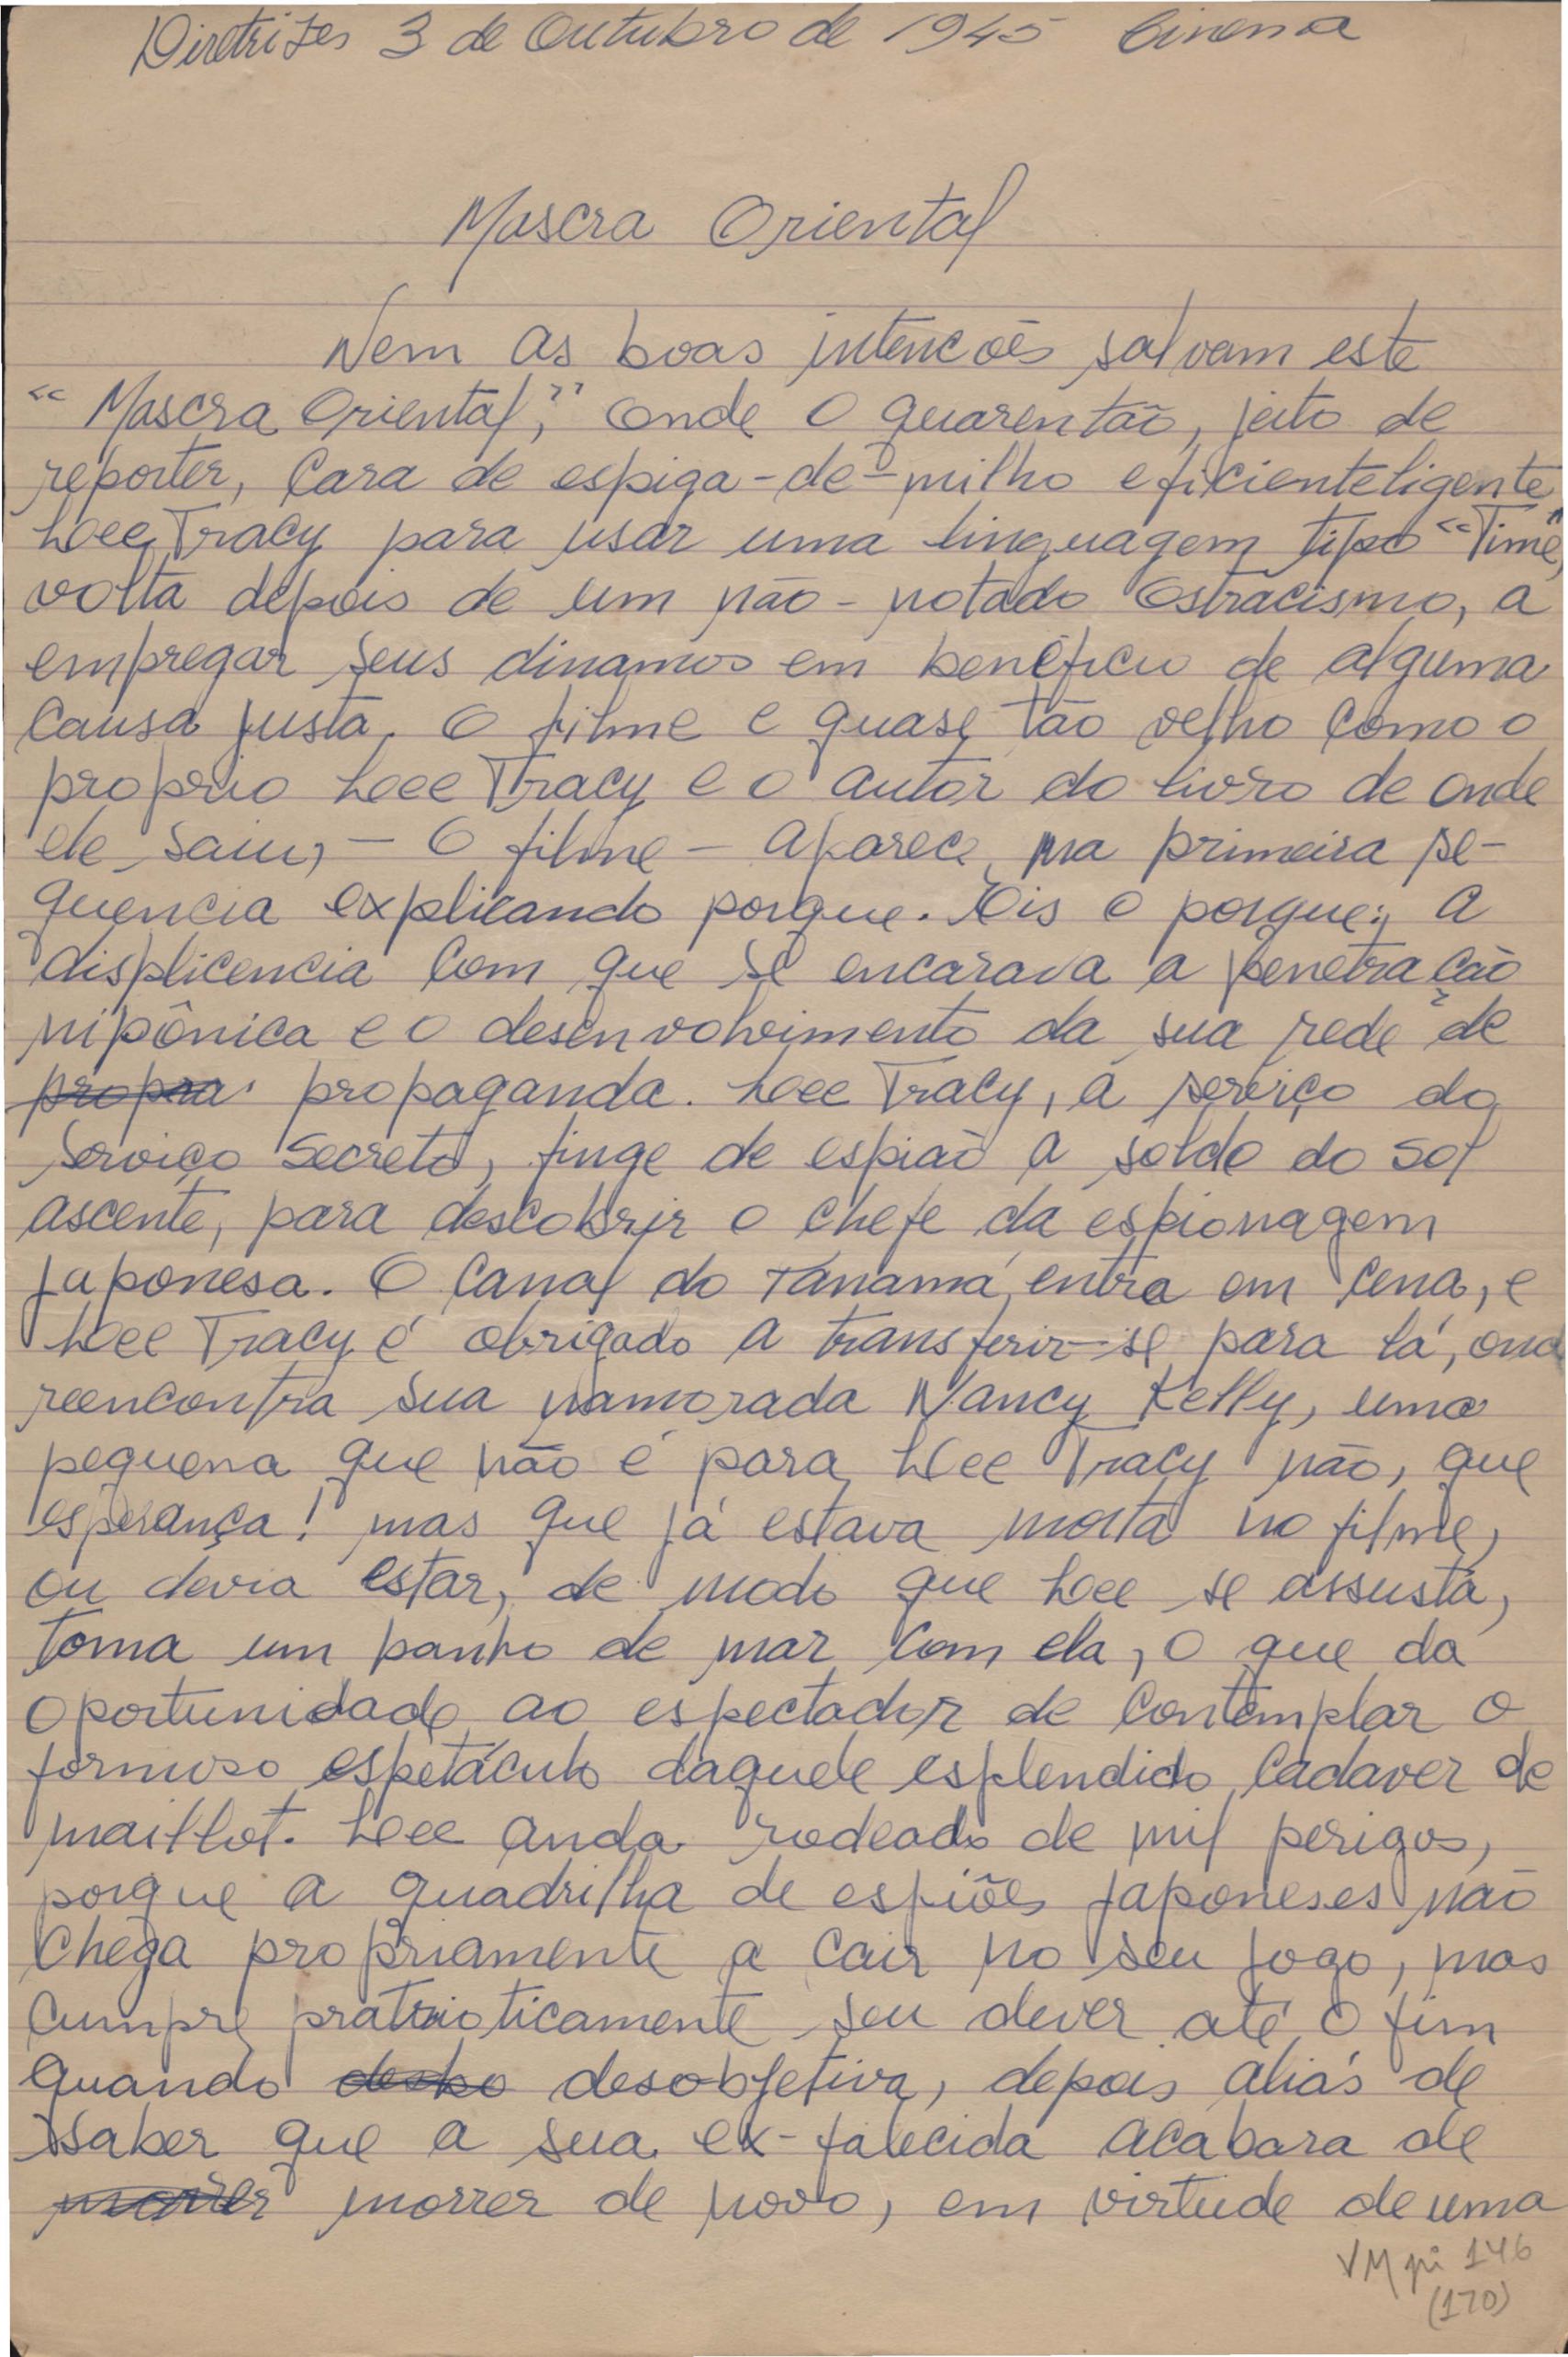 Diretrizes 3 de Outubro de 1945 Cinema
Mascra Oriental
Nem as boas intencoẽs salvam este
"Mascra Oriental," onde o quarentão, jeito de
reporter, cara de espiga-de-milho eficienteligente
Lee Tracy para usar uma linguagem tipo "Time",
volta depois de um não-notado ostracismo, a
empregar seus dinamos em benefício de alguma
causa justa. O filme e quase tão velho como o
proprio Lee Tracy e o autor do livro de onde
ele saiu, - O filme - aparece, na primeira se-
quencia explicando porque. Eis o porque: a
displicencia com que se encarava a penetração
nipônica e o desenvolvimento da sua rede de
propra propaganda. Lee Tracy, a serviço do
Serviço Secreto, finge de espião a soldo do sol
ascente, para descobrir o chefe da espionagem
japonesa. O Canal do Panamá entra em cena, e
Lee Tracy é obrigado a transferir-se para lá, ond
reencontra sua namorada Nancy Kelly, uma
pequena que não é para Lee Tracy não, que
esperança! mas que já estava morta no filme,
ou devia estar, de modo que Lee se assusta,
toma um banho de mar com ela, o que da
oportunidade ao espectador de contemplar o
formoso espetáculo daquele esplendido cadaver de
maillot. Lee anda rodeado de mil perigos,
porque a quadrilha de espiões japoneses não
chega propriamente a cair no seu jogo, mas
cumpre pratrioticamente seu dever até o fim
quando desbo desobjetiva, depois aliás de
saber que a sua ex-falecida acabara de
morrer morrer de novo, em virtude de uma
VM pi 146
(170)